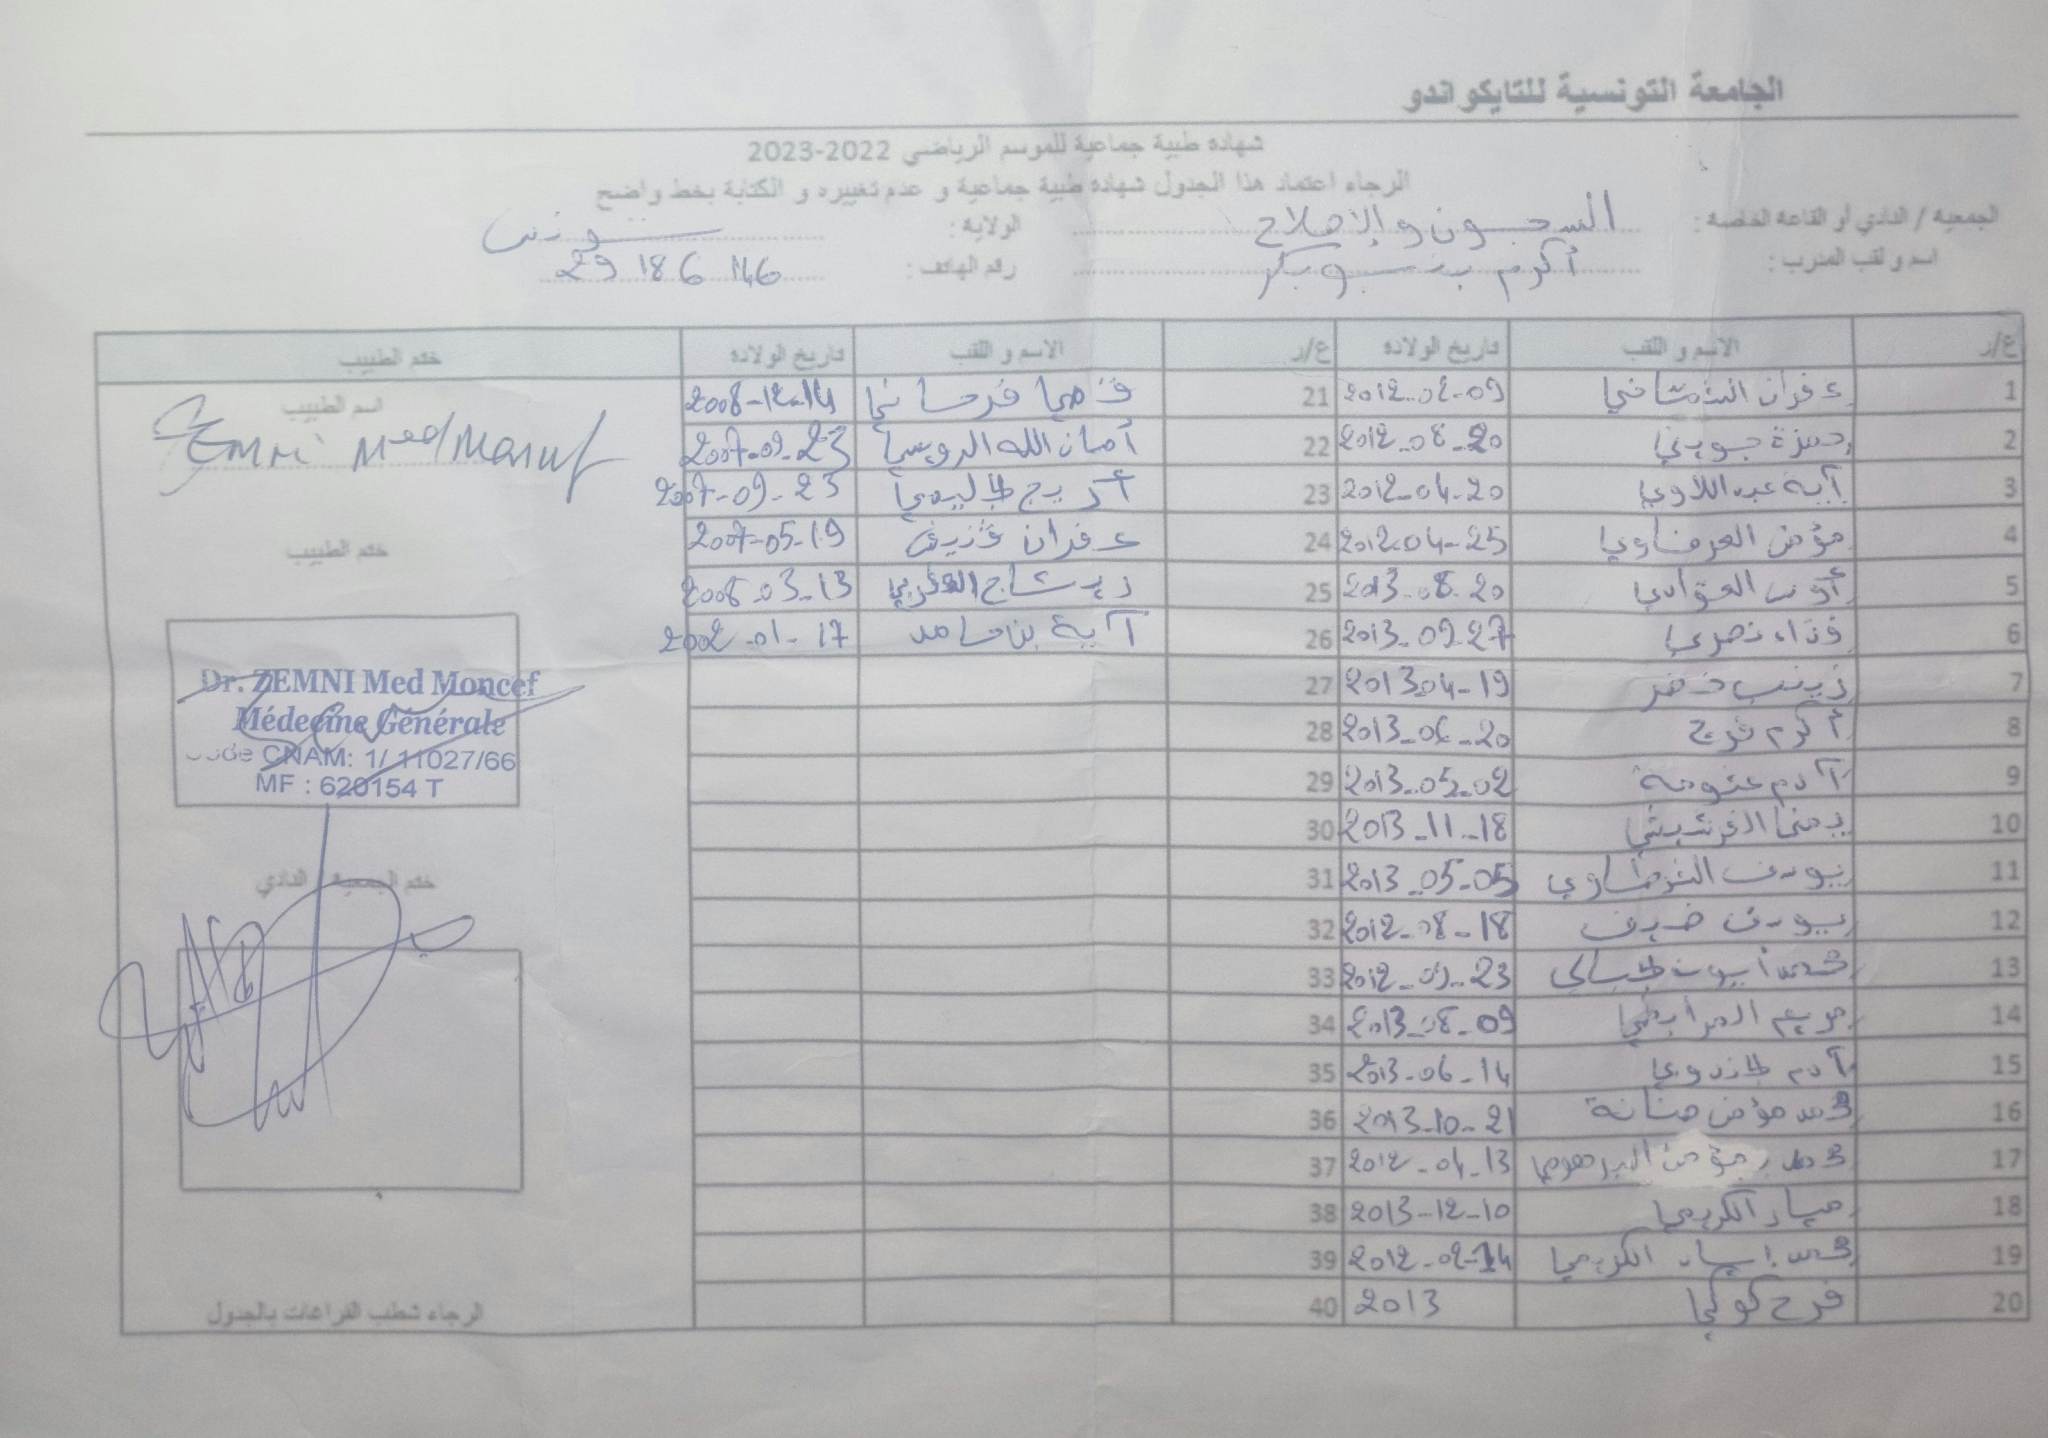 الجامعة التونسية للتايكواندو
شهادة طبية جماعية للموسم الرياضي 2022-2023
الرجاء اعتماد هذا الجدول شهادة طبية جماعية و عدم تغييره و الكتابة بخط واضح
الجمعية / النادي أو القاعة الخاصة : السجون و الإصلاح الولاية : تونس
اسم و لقب المدرب : أكرم بنبوبكر رقم الهاتف : 29 186 146
ع/ر الاسم و اللقب تاريخ الولادة ع/ر الاسم و اللقب تاريخ الولادة ختم الطبيب
1 2012-02-09 21 2008-12-14
2 حمزة جويني 2012-08-20 22 أمان الله الدويسي 2007-09-23
3 آية عبداللاوي 2012-04-20 23 أريج طليمي 2007-09-23
4 مؤمن العرفاوي 2012-04-25 24 2007-05-19
5 2013-08-20 25 2008-03-13
6 نصري 2013-09-27 26 آية بن حامد 2002-01-17
7 زينب خضر 2013-04-19 27
8 أكرم فرج 2013-06-20 28
9 آدم 2013-05-02 29
10 يمنى الفرشيشي 2013-11-18 30
11 يوسف 2013-05-05 31
12 يوسف ضيف 2012-08-18 32
13 محمد أيوب 2012-09-23 33
14 مريم المرابطي 2013-08-09 34
15 آدم 2013-06-14 35
16 محمد مؤمن 2013-10-21 36
17 محمد مؤمن 2012-04-13 37
18 ميار الكريمي 2013-12-10 38
19 محمد إياد الكريمي 2012-02-14 39
20 فرح كوكي 2013 40
اسم الطبيب
Zemni Med Moncef
ختم الطبيب
Dr. ZEMNI Med Moncef
Médecine Générale
Code CNAM: 1/ 11027/66
MF : 620154 T
ختم الجمعية / النادي
الرجاء شطب الفراغات بالجدول